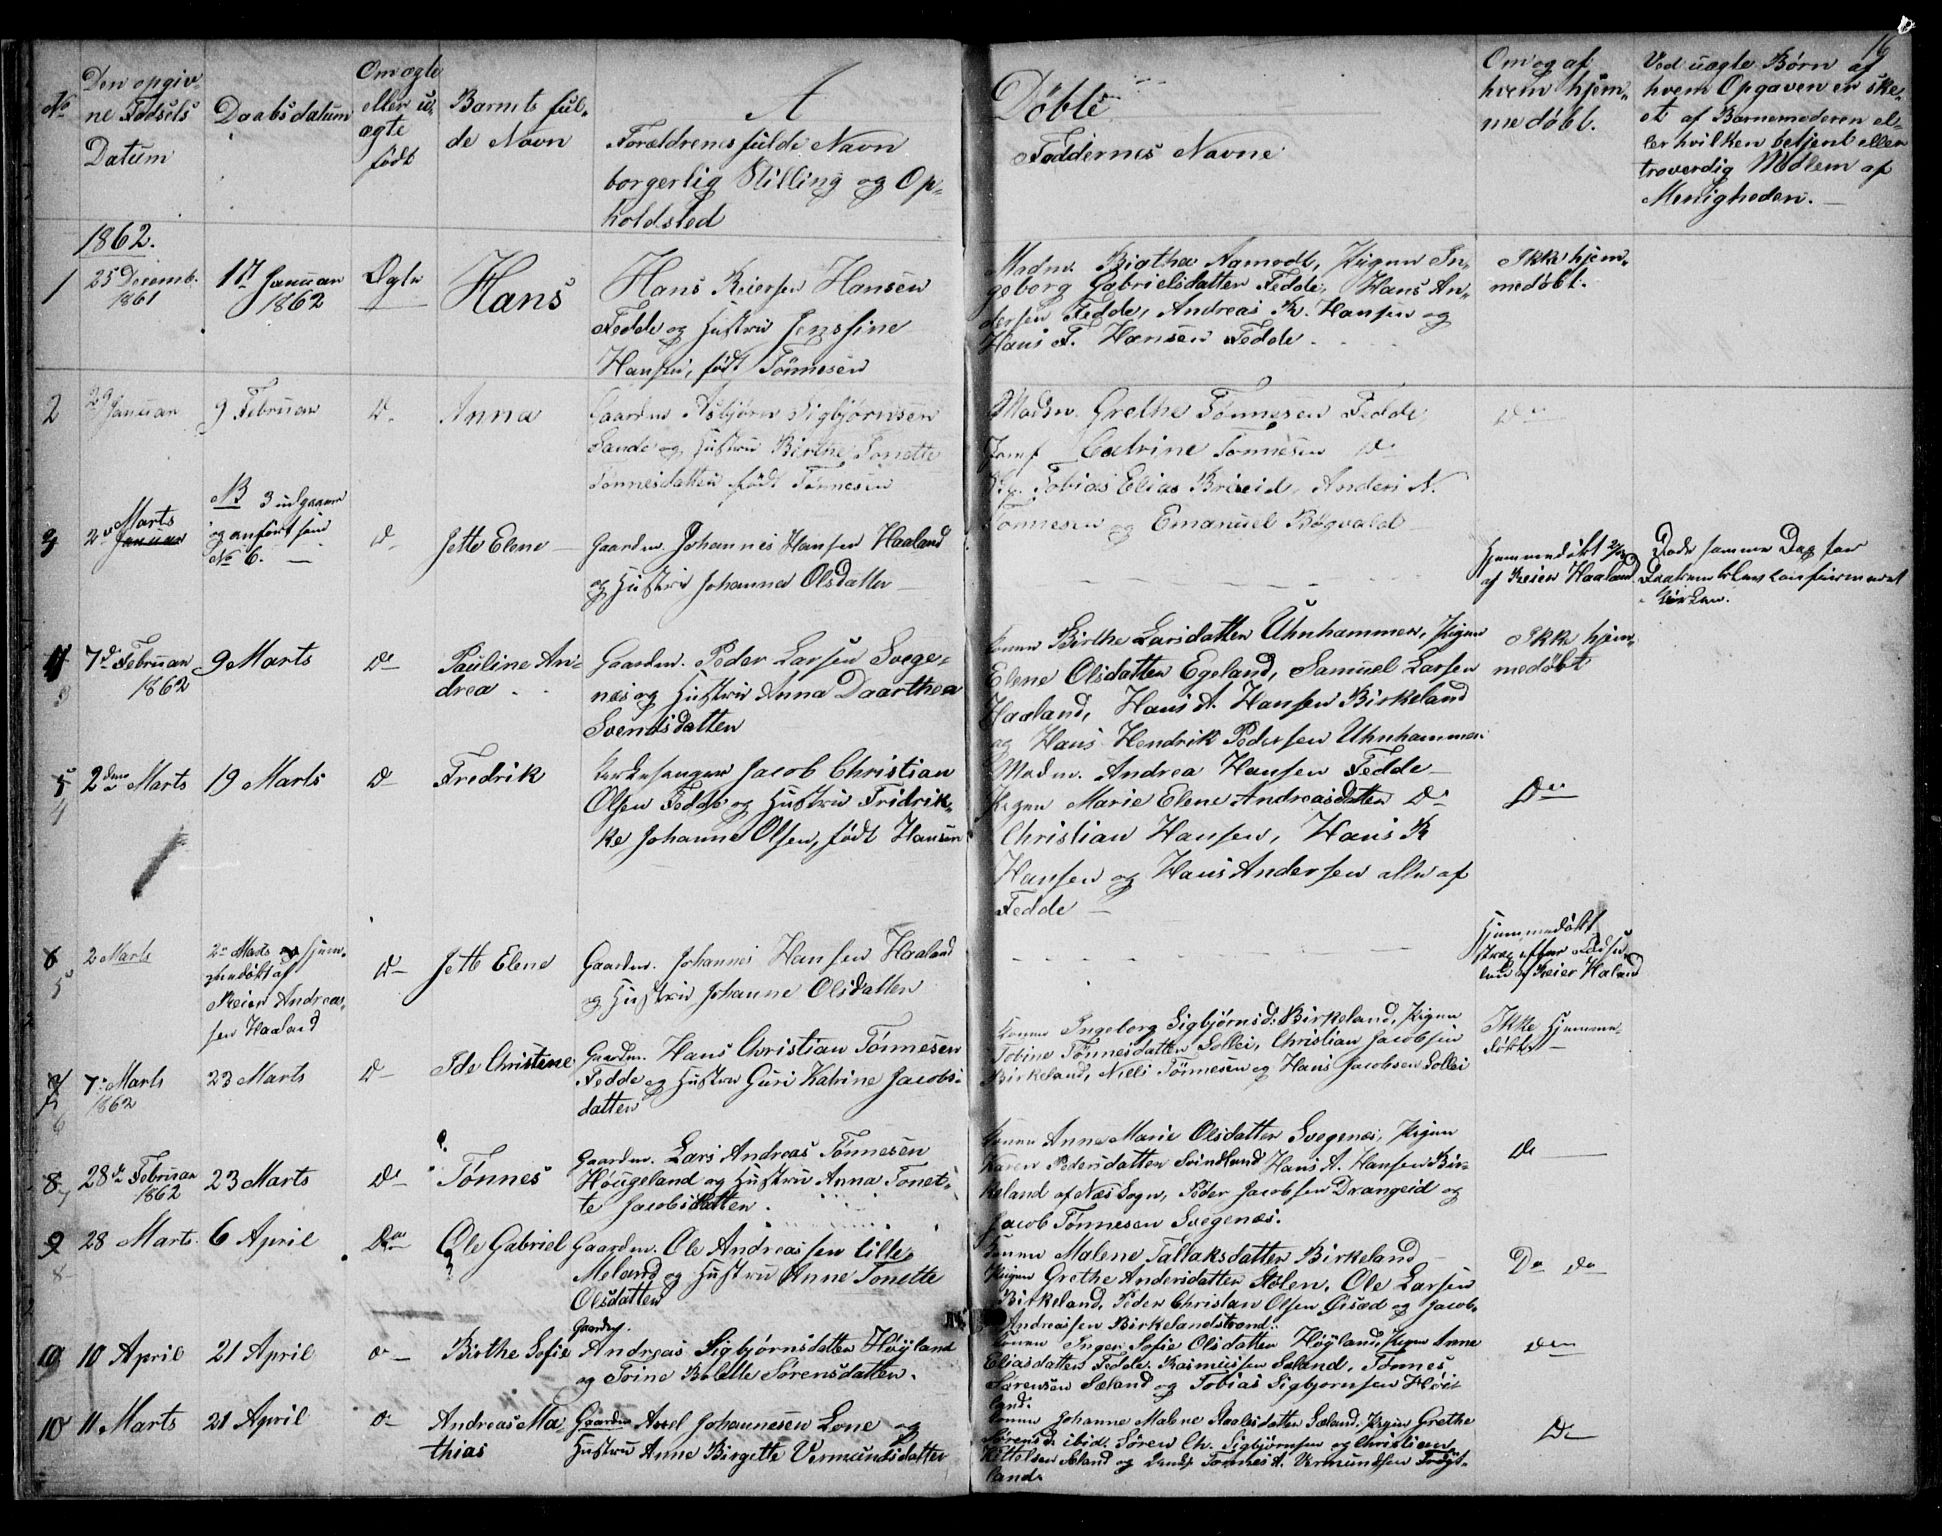 16
No
Den opgiv-
ne Fødsels
Datum
Daabsdatum
Om ægte
eller u-
ægte
født
Barnets ful-
de Navn
A
Forældrenes fulde Navn
borgerlig Stilling og Op-
holdsted
Døbte
Faddernes Navne
Om og af
hvem hjem-
medøbt.
Ved uægte Børn af
hvem Opgaven er ske-
et af Barnemoderen el-
ler hvilken betjent eller
troverdig Medlem af
Menigheden.
1862.
1
25 Decemb.
1861
1st Januar
1862
Ægte
Hans
Hans Reiersen Hansen
Fedde og Hustru Jenssine
Hansen, født Tønnesen
Madm. Birthe Aamodt, Pigen In-
geborg Gabrielsdatter Fedde, Hans An-
dersen Fedde, Andreas R. Hansen og
Hans F. Hansen Fedde.
Ikke hjem-
medøbt.
2
29 Januar
9 Februar
Do
Anna
Gaardm. Asbjørn Sigbjørnsen
Sande og Hustru Birthe Tonette
Tønnesdatter født Tønnesen
Madm. Grethe Tønnesen Fedde
Jomf Catrine Tønnesen Do
Tobias Elias Briseid, Anders N.
Tønnesen og Emanuel Bøgvald
Do
3
2 Marts
Januar
NB 3 udgaaer
og anført som
No 6.
Do
Jette Elene
Gaardm. Johannes Hansen Haaland
og Hustru Johanna Olsdatter
Hjemmedøbt 2/3
af Reier Haaland
Døde samme Dag før
Daaben blev confirmeret
i Kirken.
4
3
7de Februar
1862
9 Marts
Do
Pauline An-
drea
Gaardm. Peder Larsen Svege-
næs og Hustru Anna Daarthea
Svendsdatter
Konen Birthe Larsdatter Uhnhammer, Pigen
Elene Olsdatter Egeland, Samuel Larsen
Haaland, Hans A. Hansen Birkeland
og Hans Hendrik Pedersen Uhnhammer
Ikke hjem-
medøbt
5
4
2den Marts
19 Marts
Do
Fredrik
Kirkesanger Jacob Christian
Olsen Fedde og Hustru Fridrik-
ke Johanne Olsen, født Hansen
Madm. Andrea Hansen Fedde
Pigen Marie Elene Andreasdatter Do
Christian Hansen, Hans R
Hansen og Hans Andersen alle af
Fedde
Do
6
5
2 Marts
2 Marts hjem-
medøbt af
Reier Andreas-
sen Haaland
Do
Jette Elene
Gaardm. Johannes Hansen Haaland
og Hustru Johanne Olsdatter
Hjemmedøbt
strax efter Fødse-
len af Reier Haland
7
6
7 Marts
1862
23 Marts
Do
Ide Christine
Gaardm. Hans Christian Tønnesen
Fedde og Hustru Guri Katrine Jacobs-
datter
Konen Ingeborg Sigbjørnsd. Birkeland, Pigen
Tobine Tønnesdatter Sollei, Christian Jacobsen
Birkeland, Niels Tønnesen og Hans Jacobsen Sollei
Ikke Hjemme-
døbt
8
7
28de Februar
1862
23 Marts
Do
Tønnes
Gaardm. Lars Andreas Tønnesen
Hougeland og Hustru Anna Tonet-
te Jacobsdatter.
Konen Anne Marie Olsdatter Svegenes, Pigen
Karen Pedersdatter Svindland Hans A. Hansen Bir-
keland af Næs Sogn, Peder Jacobsen Drangeid og
Jacob Tønnesen Svegenæs.
Do
9
8
28 Marts
6 April
Do
Ole Gabriel
Gaardm. Ole Andreassen lille
Meland og Hustru Anne Tonette
Olsdatter
Konen Malene Tallaksdatter Birkeland
Pigen Grethe Andersdatter Stølen, Ole Larsen
Birkeland, Peder Christian Olsen Øisæd og Jacob
Andreassen Birkelandstrand.
Do Do
10
10 April
21 April
Do
Birthe Sofie
Gaardm.
Andreas Sigbjørnsdatter Høyland
og Trine Bolette Sørensdatter.
Konen Inger Sofie Olsdatter Høyland, Pigen Anne
Eliasdatter Fedde. Rasmussen Sæland, Tønnes
Sørensen Sæland og Tobias Sigbjørnsen Høi-
land.
Do
10
11 Marts
21 April
Do
Andreas Ma
thias
Gaardm Axel Johannesen Lone og
Hustru Anne Birgette Vermundsdatter
Konen Johanne Malene Roalsdatter Sæland, Pigen Grethe
Sørensd. ibid. Søren Ch. Sigbjørnsen og Christian
Kittelsen Sæland og Tønnes A. Vermundsen Frøyt-
land.
Do